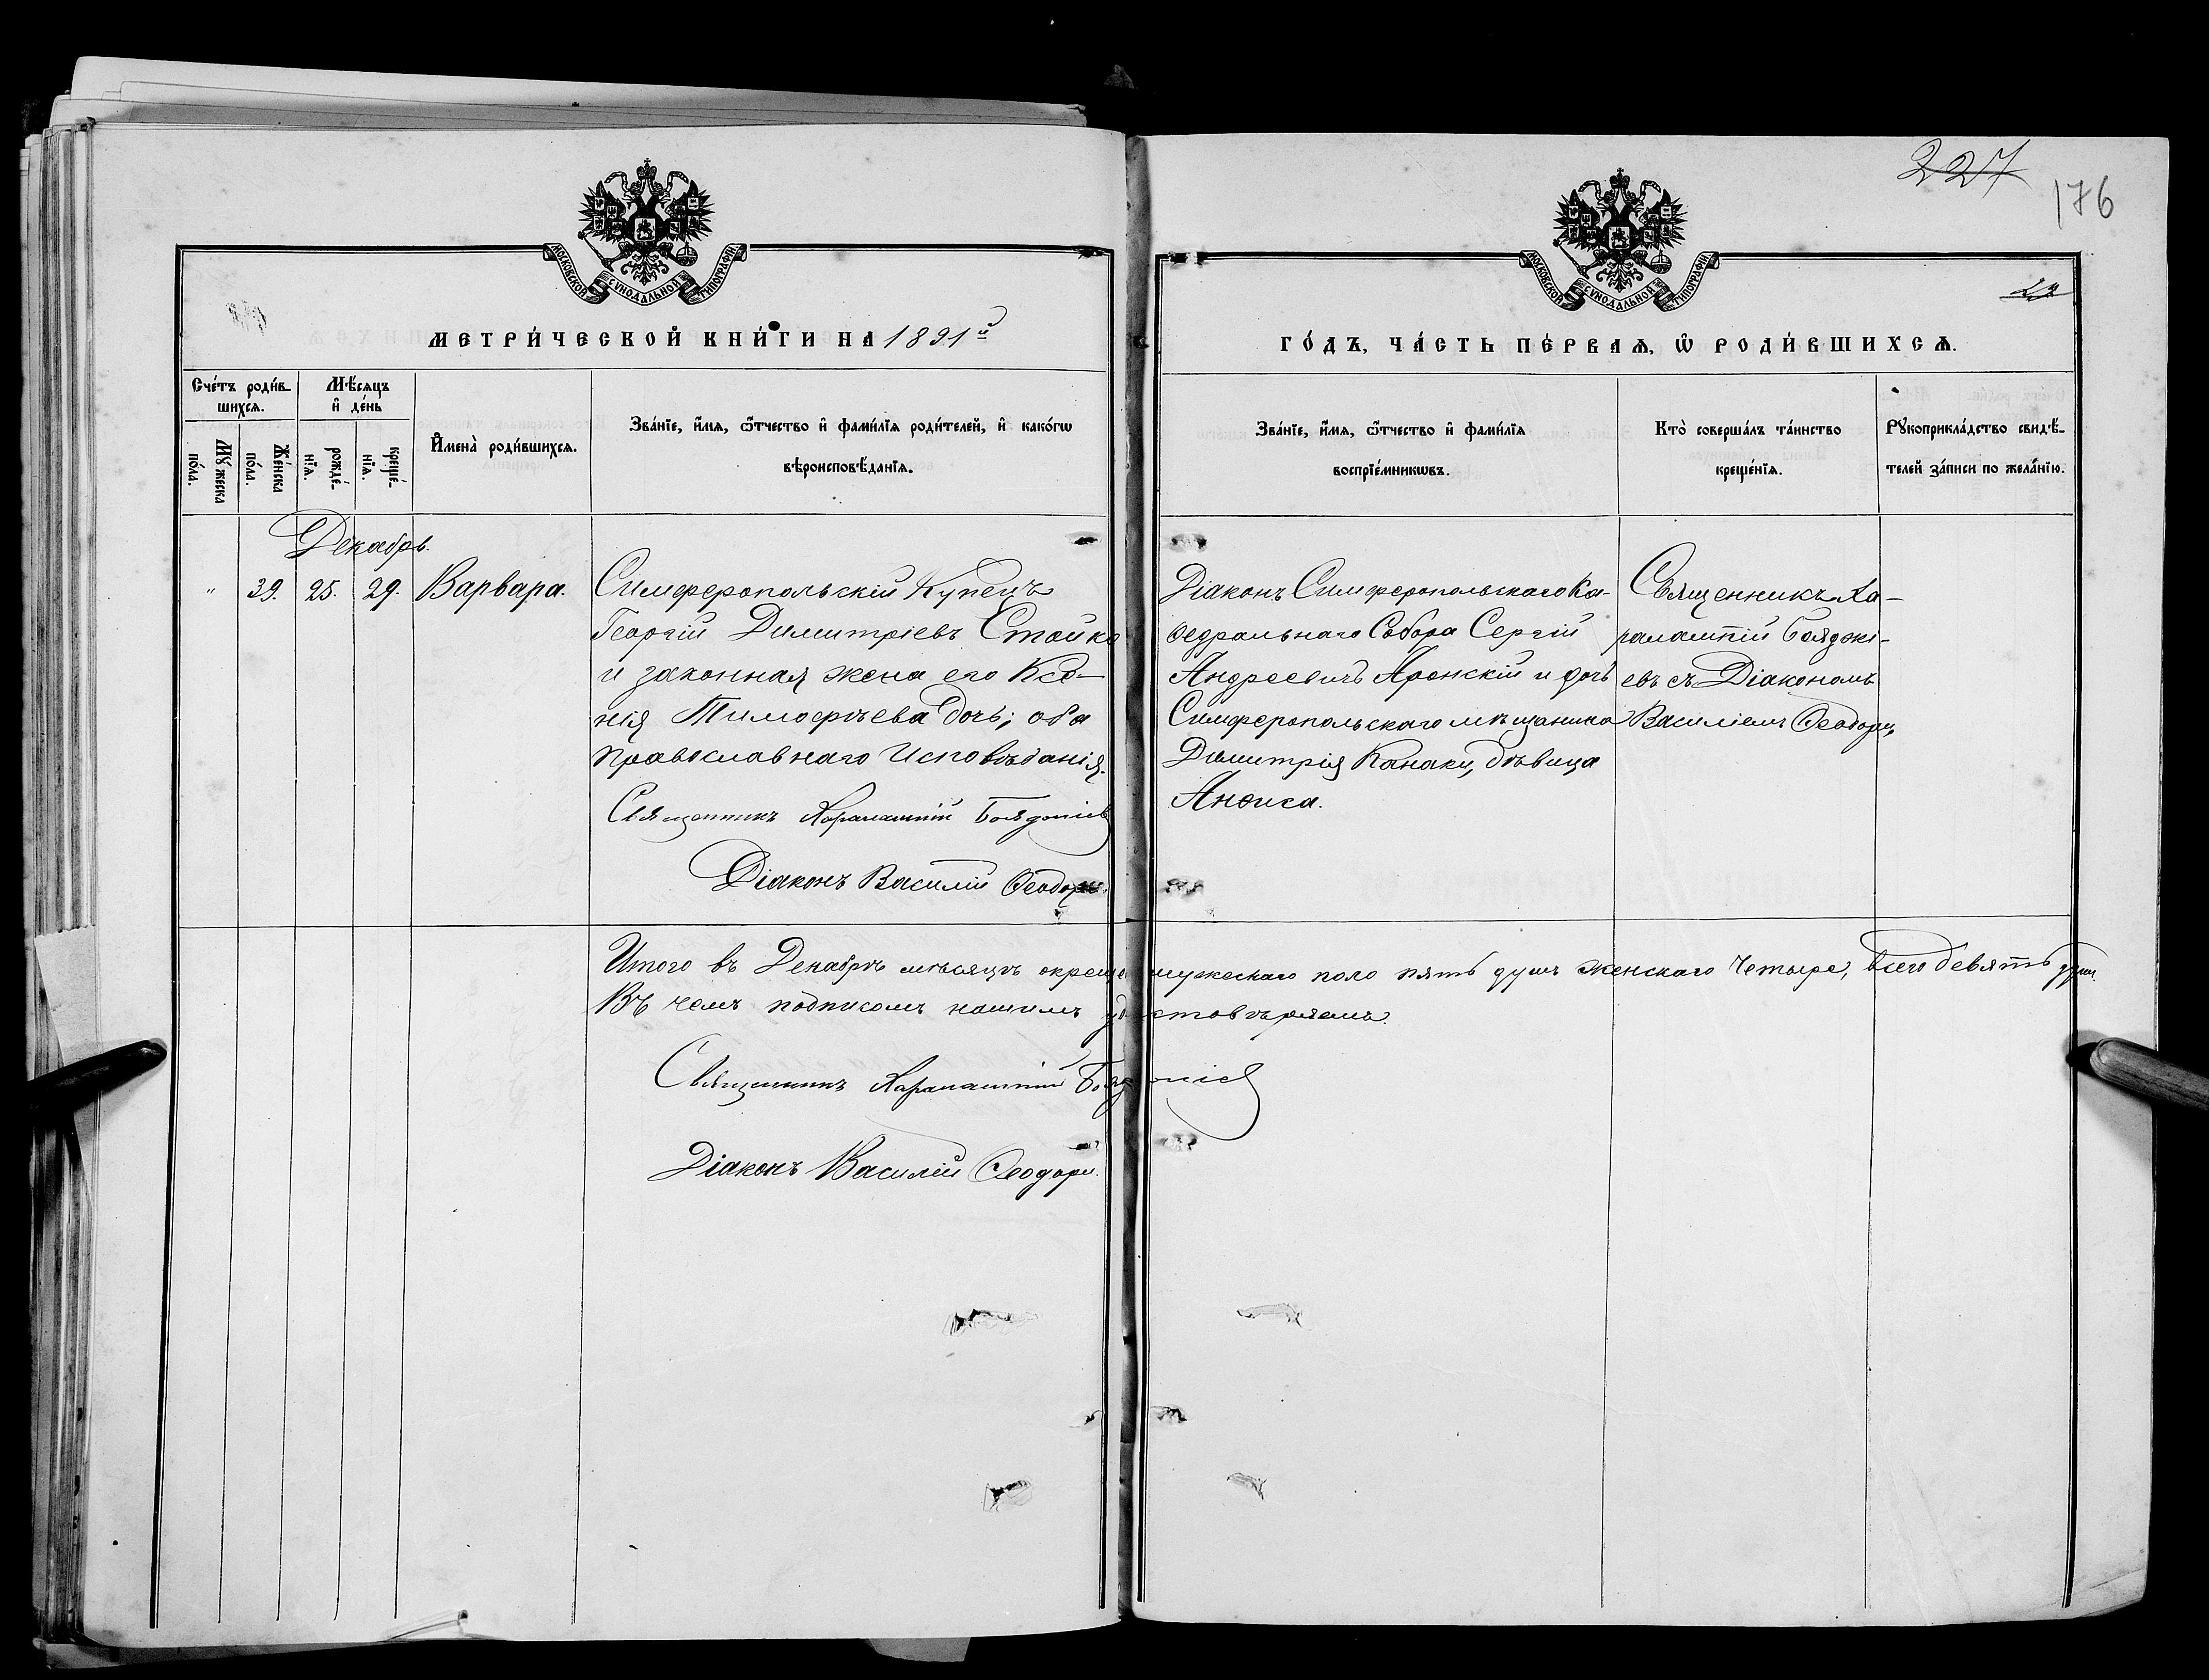 227
176
МОСКОВСКОЙ СУНОДАЛЬНОЙ ТИПОГРАФІИ
МОСКОВСКОЙ СУНОДАЛЬНОЙ ТИПОГРАФІИ
МЕТРИ́ЧЕСКОЙ КНИ́ГИ НА 1891й
ГО́ДЪ, ЧА́СТЬ ПЕ́РВАѦ, Ѡ РОДИ́ВШИХСѦ.
Сче́тъ роди́в-
шихсѧ.
Мѣ́сѧцъ
и҆ де́нь
Мꙋ́жеска
по́ла.
Же́нска
по́ла.
рожде́-
нїѧ.
креще́-
нїѧ.
И҆мена̀ роди́вшихсѧ.
Зва́нїе, и҆́мѧ, ѻ҆́тчество и҆ фами́лїѧ роди́телей, и҆ како́гѡ
вѣроисповѣ́данїѧ.
Зва́нїе, и҆́мѧ, ѻ҆́тчество и҆ фами́лїѧ
воспрїе́мникѡвъ.
Кто̀ соверша́лъ та́инство
креще́нїѧ.
Рꙋкоприкла́дство свидѣ́-
телей за́писи по жела́нїю.
Декабрь.
" 39. 25. 29. Варвара.
Симферопольскій Купецъ
Георгій Димитріевъ Стойко
и законная жена его Ксе-
нія Тимофѣева дочь; оба
Православнаго Исповѣданія.
Священникъ Харалампій Бояджіев
Діаконъ Василій Ѳеодори.
Діаконъ Симферопольскаго Ка-
ѳедральнаго Собора Сергій
Андреевичъ Аренскій и дочь
Симферопольскаго мѣщанина
Димитрія Канаки, дѣвица
Анѳиса.
Священникъ Ха-
ралампій Бояджі-
евъ съ Діакономъ
Василіемъ Ѳеодори,
Итого въ Декабрѣ мѣсяцѣ окрещено мужескаго пола пять душъ женскаго четыре, всего девять душ.
Въ чемъ подписомъ нашимъ удостовѣряемъ.
Священникъ Харалампій Бояджіев
Діаконъ Василій Ѳеодори.